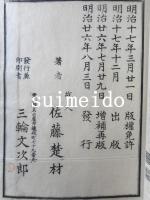 明治十七年三月廿一日 版權免許
明治十七年十二月 出版
明治廿六年七月廿九日 増補再版
明治廿六年八月三日 發行
著者 故 佐藤楚材
發行兼印刷者 三輪文次郎
suimeido